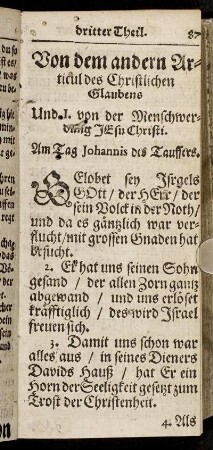 dritter Theil. 87
Von dem andern Ar-
ticul des Christlichen
Glaubens
Und I. von der Menschwer-
dung JEsu Christi.
Am Tag Johannis des Tauffers.
GElobet sey Jsrgels
GOtt / der HErr / der
sein Volck in der Noth /
und da es gäntzlich war ver-
flucht / mit grossen Gnaden hat
besucht.
2. Er hat uns seinen Sohn
gesand / der allen Zorn gantz
abgewand / und uns erlöset
kräfftiglich / des wird Israel
freuen sich.
3. Damit uns schon war
alles aus / in seines Dieners
Davids Hauß / hat Er ein
Horn der Seeligkeit gesetzt zum
Trost der Christenheit.
4. Als